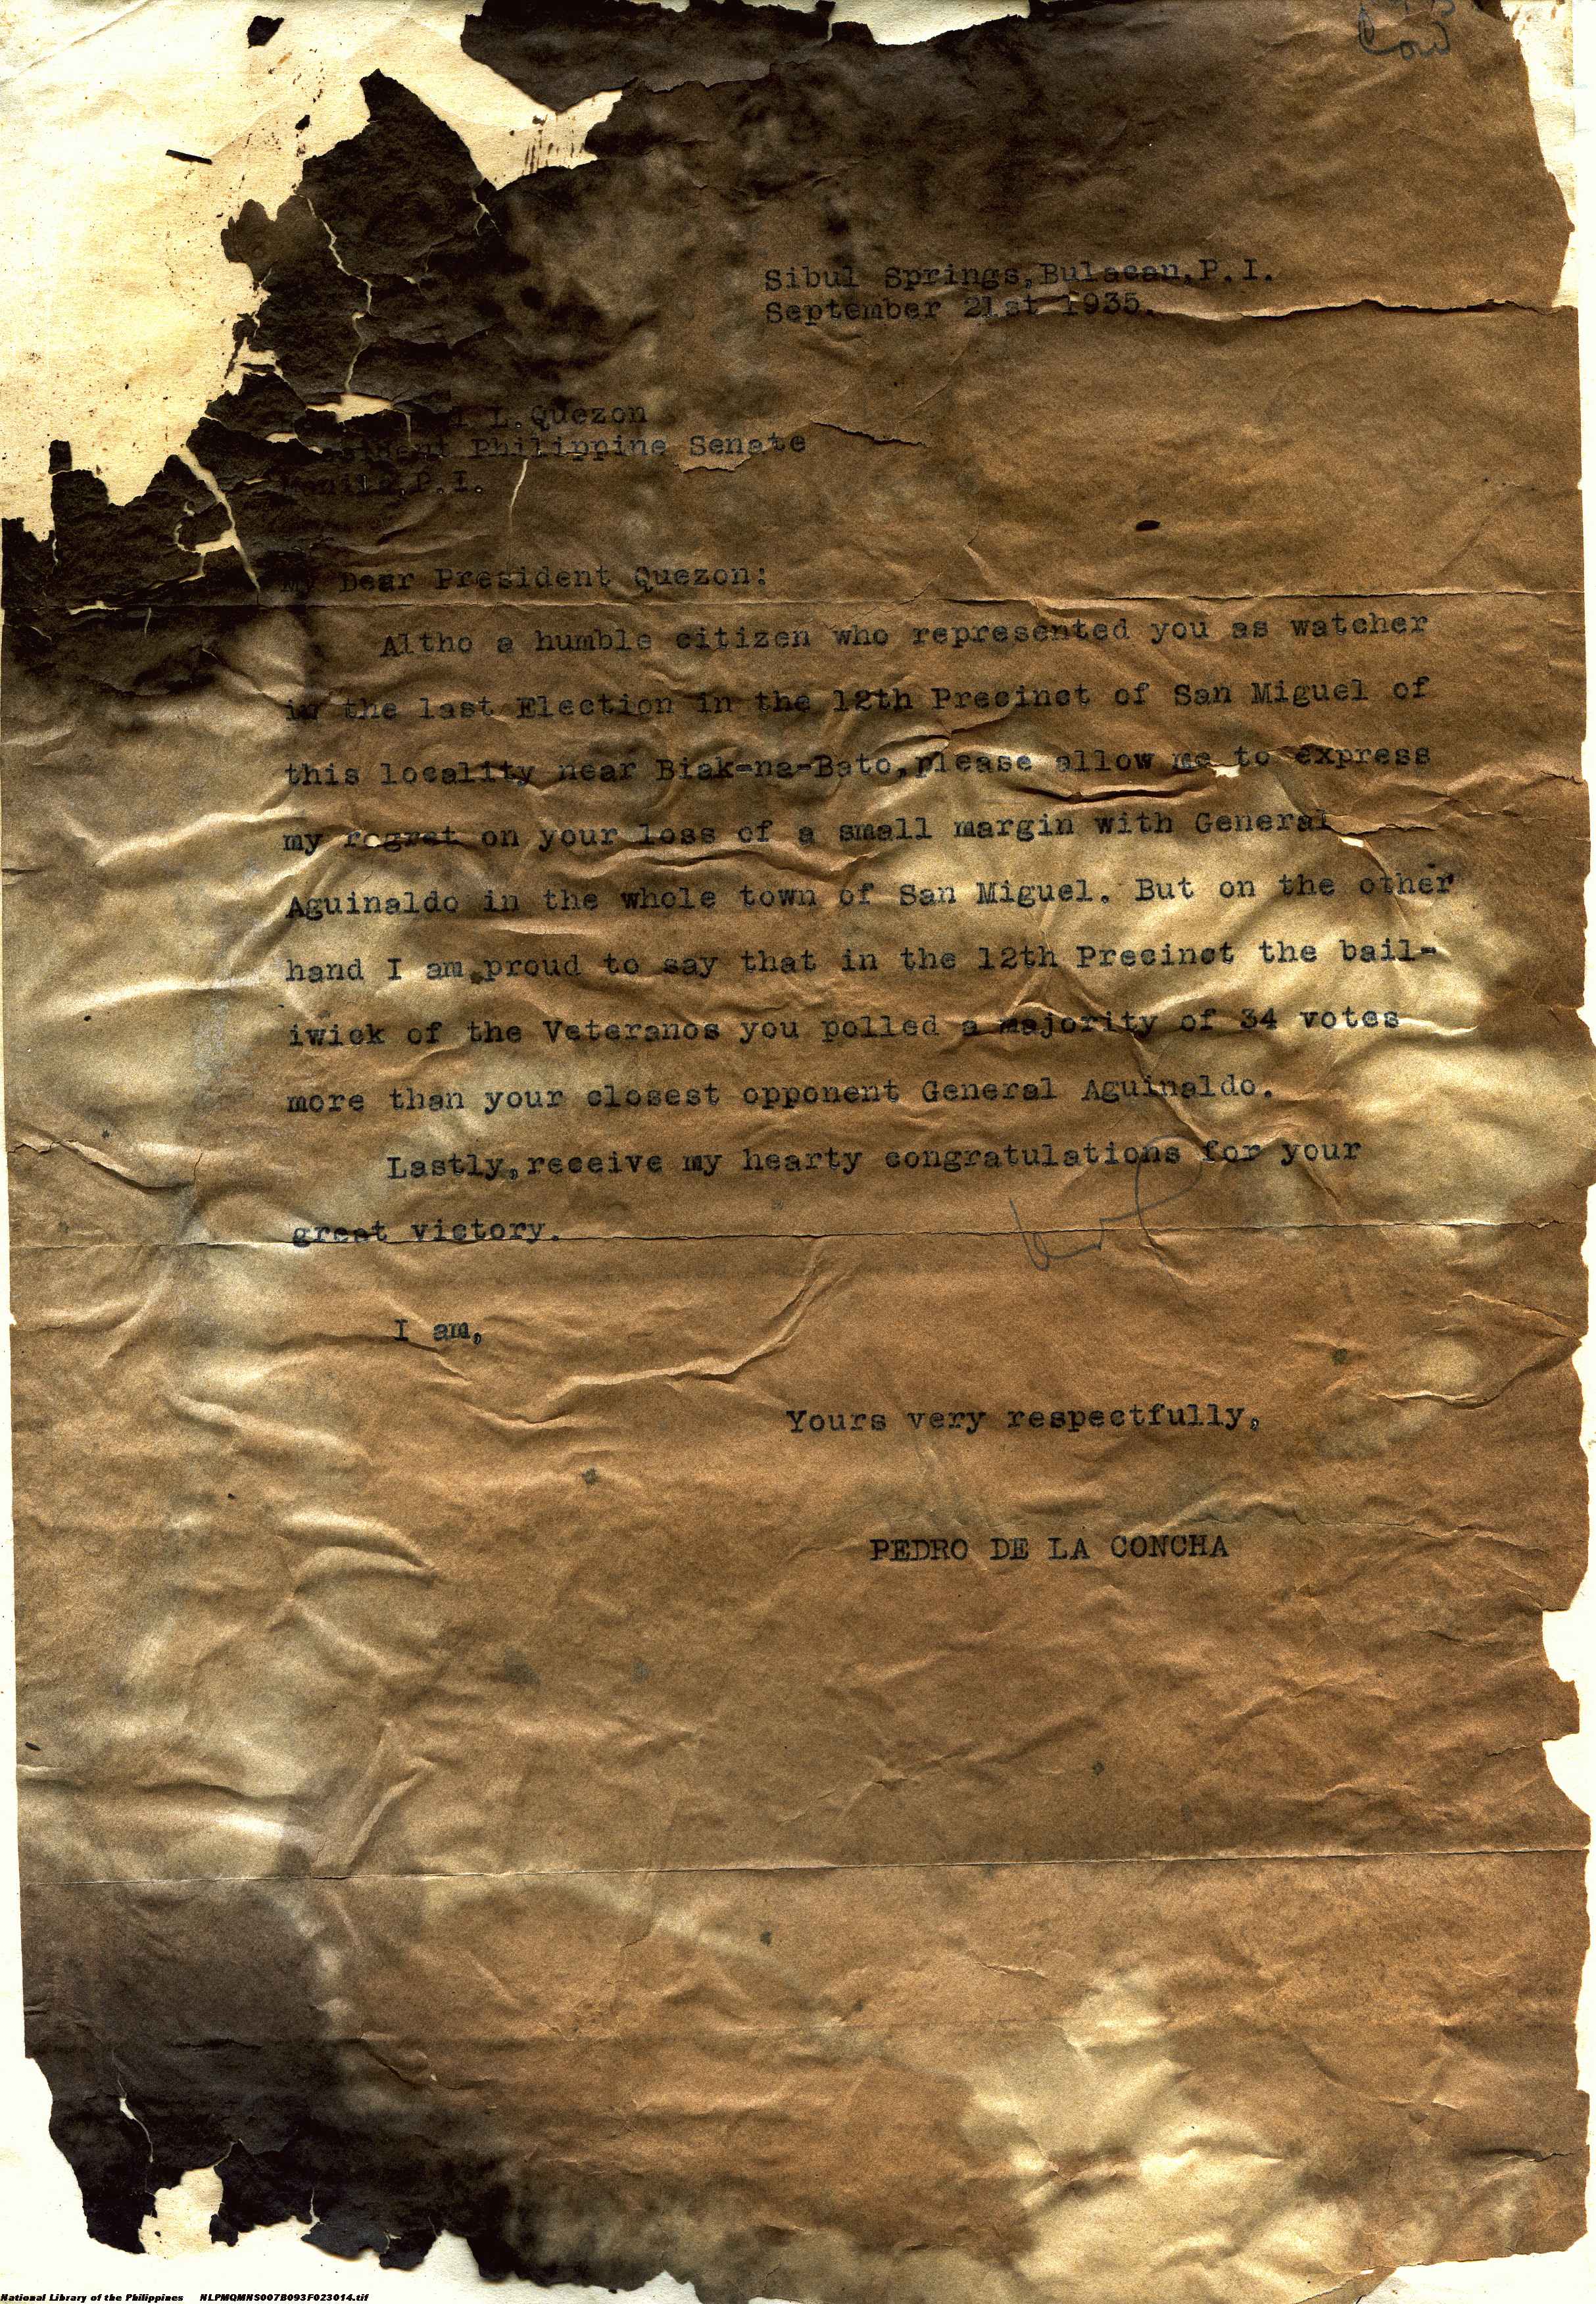 Sibul Springs,Bulacan,P.I.
September 21st 1935.
L.Quezon
President Philippine Senate
Manila,P.I.
My Dear President Quezon:
Altho a humble citizen who represented you as watcher
in the last Election in the 12th Precinct of San Miguel of
this locality near Biak-na-Bato,please allow me to express
my regret on your loss of a small margin with General
Aguinaldo in the whole town of San Miguel. But on the other
hand I am proud to say that in the 12th Precinct the bail-
iwick of the Veteranos you polled a majority of 34 votes
more than your closest opponent General Aguinaldo.
Lastly,receive my hearty congratulations for your
great victory.
I am,
Yours very respectfully,
PEDRO DE LA CONCHA
National Library of the Philippines NLPMQMNS007B093F023014.tif